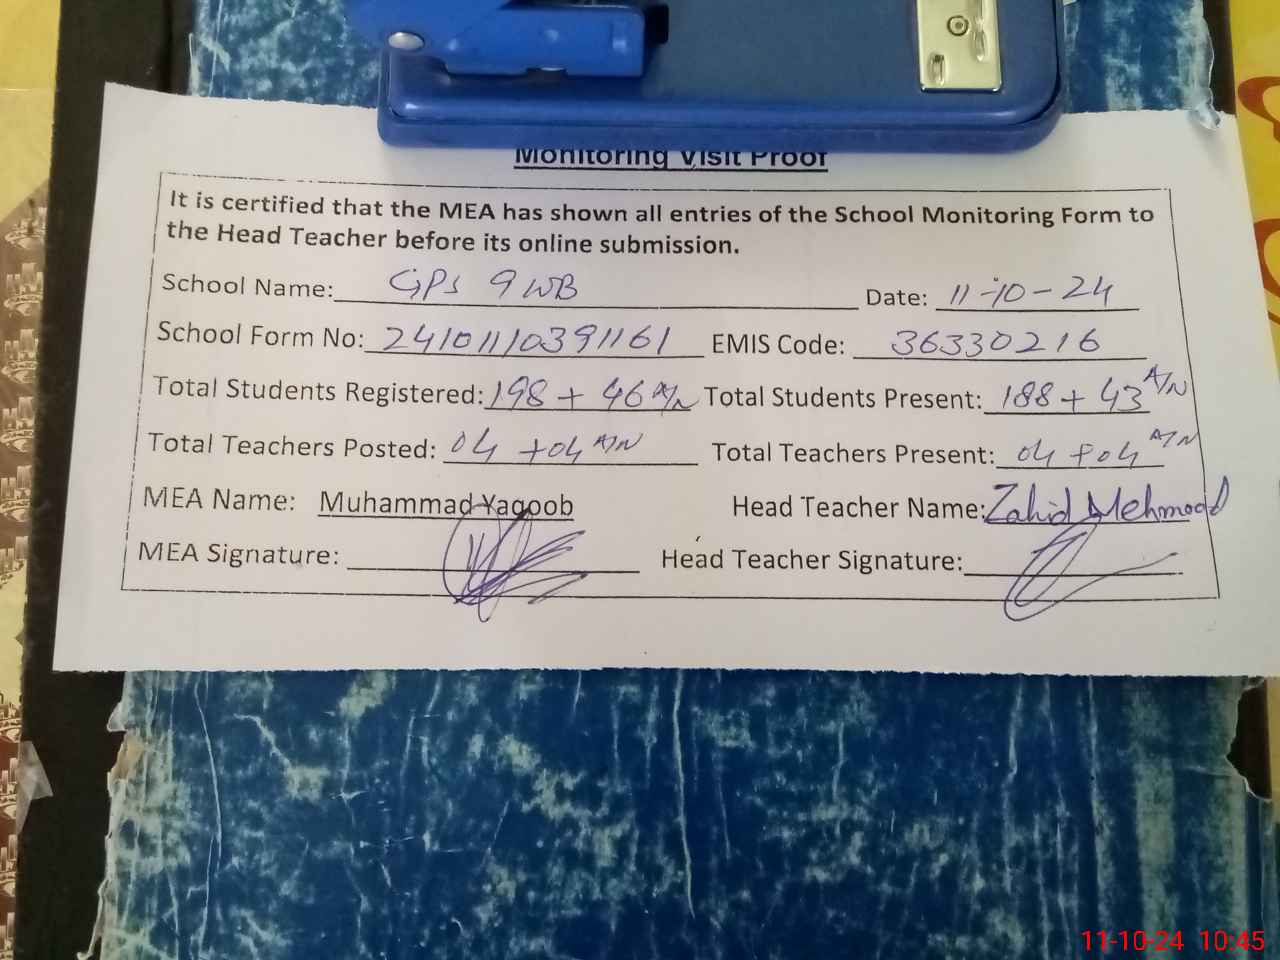 Monitoring Visit Proof
It is certified that the MEA has shown all entries of the School Monitoring Form to
the Head Teacher before its online submission.
School Name: GPS 9 WB Date: 11-10-24
School Form No: 24101110391161 EMIS Code: 36330216
Total Students Registered: 198 + 46 A/N Total Students Present: 188 + 43 A/N
Total Teachers Posted: 04 +04 A/N Total Teachers Present: 04 +04 A/N
MEA Name: Muhammad Yaqoob Head Teacher Name: Zahid Mehmood
MEA Signature: Head Teacher Signature:
11-10-24 10:45